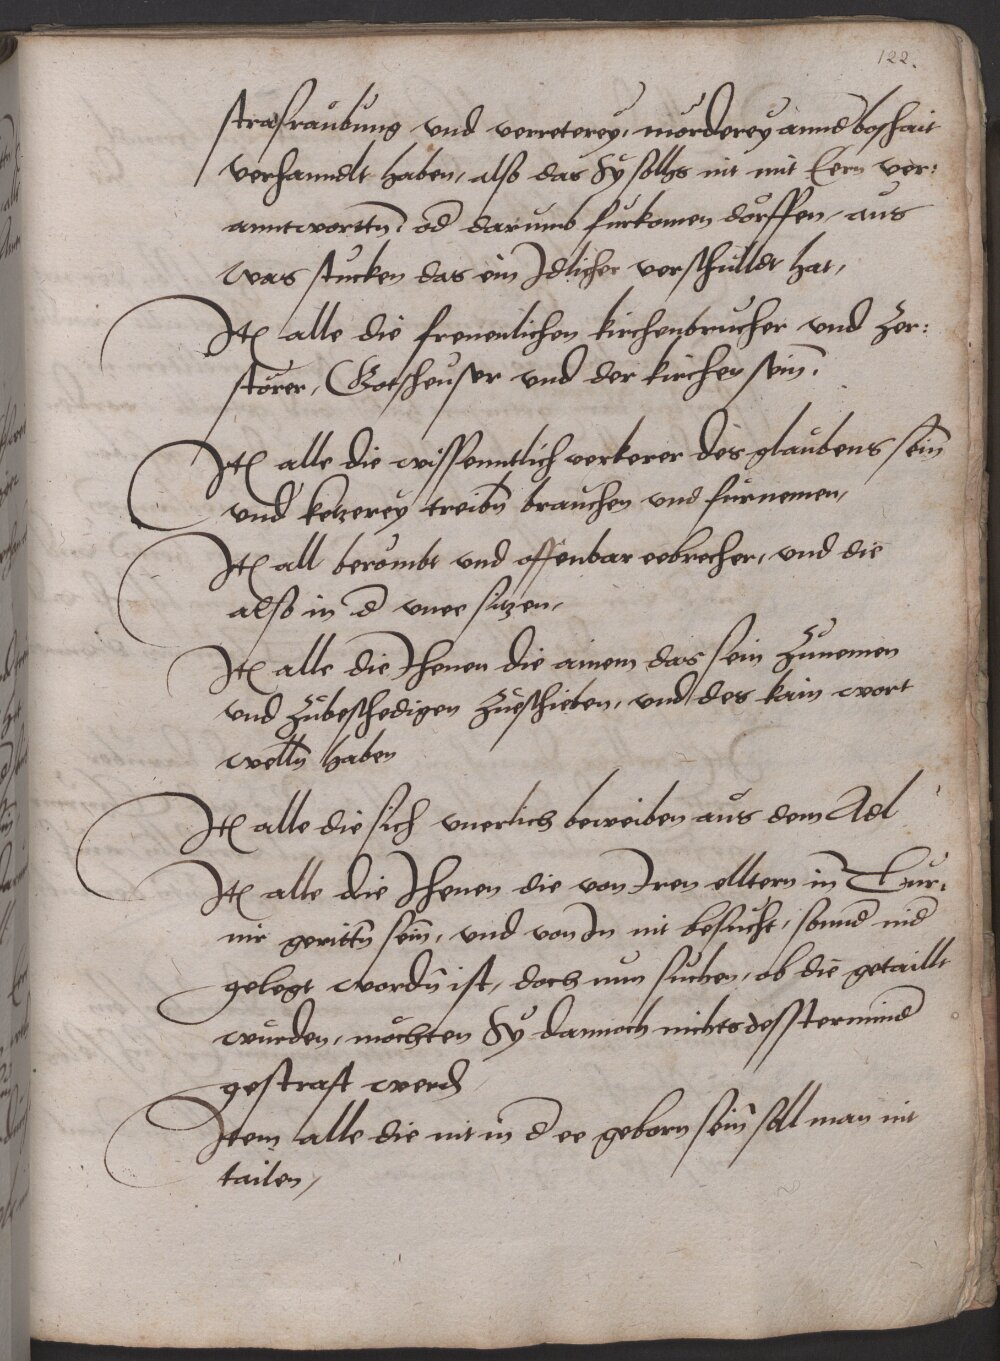 122.
straſraubung vnd verreterey, mörderey annd boshait
verhanndlt haben, also das Sy sollhs nit mit Eern ver:
anntwortten od darumb furkomen dörffen, aus
was stucken das ein Jdlicher verschulldt hat,
Jt alle die freuenlichen kirchenbrucher vnd Zer:
störer, Gotsheuser vnd der kirchen sein.
Jt alle die wissenntlich verkerer des glaubens sein
vnd ketzerey treibn brauchen vnd furnemen,
Jt all berömbt vnd offenbar eebrecher, vnd die
also in d vnee sitzen,
Jt alle die Jhenen die ainem das sein Zunemen
vnd Zubeschedigen Zueschieben, vnd des kain wort
welln haben
Jt alle die sich vnerlich beweiben aus dem Adl
Jt alle die Jhenen die von Jren elltern in Tur:
nir gerittn sein, vnd von Jn nit besucht, sonnd nid
gelegt wordn ist, doch nun suchen, ob die getaillt
wurden, möchten Sy dannoch nichts desstermind
gestrafft werd
Jtem alle die nit in d ee geborn sein soll man nit
tailen,